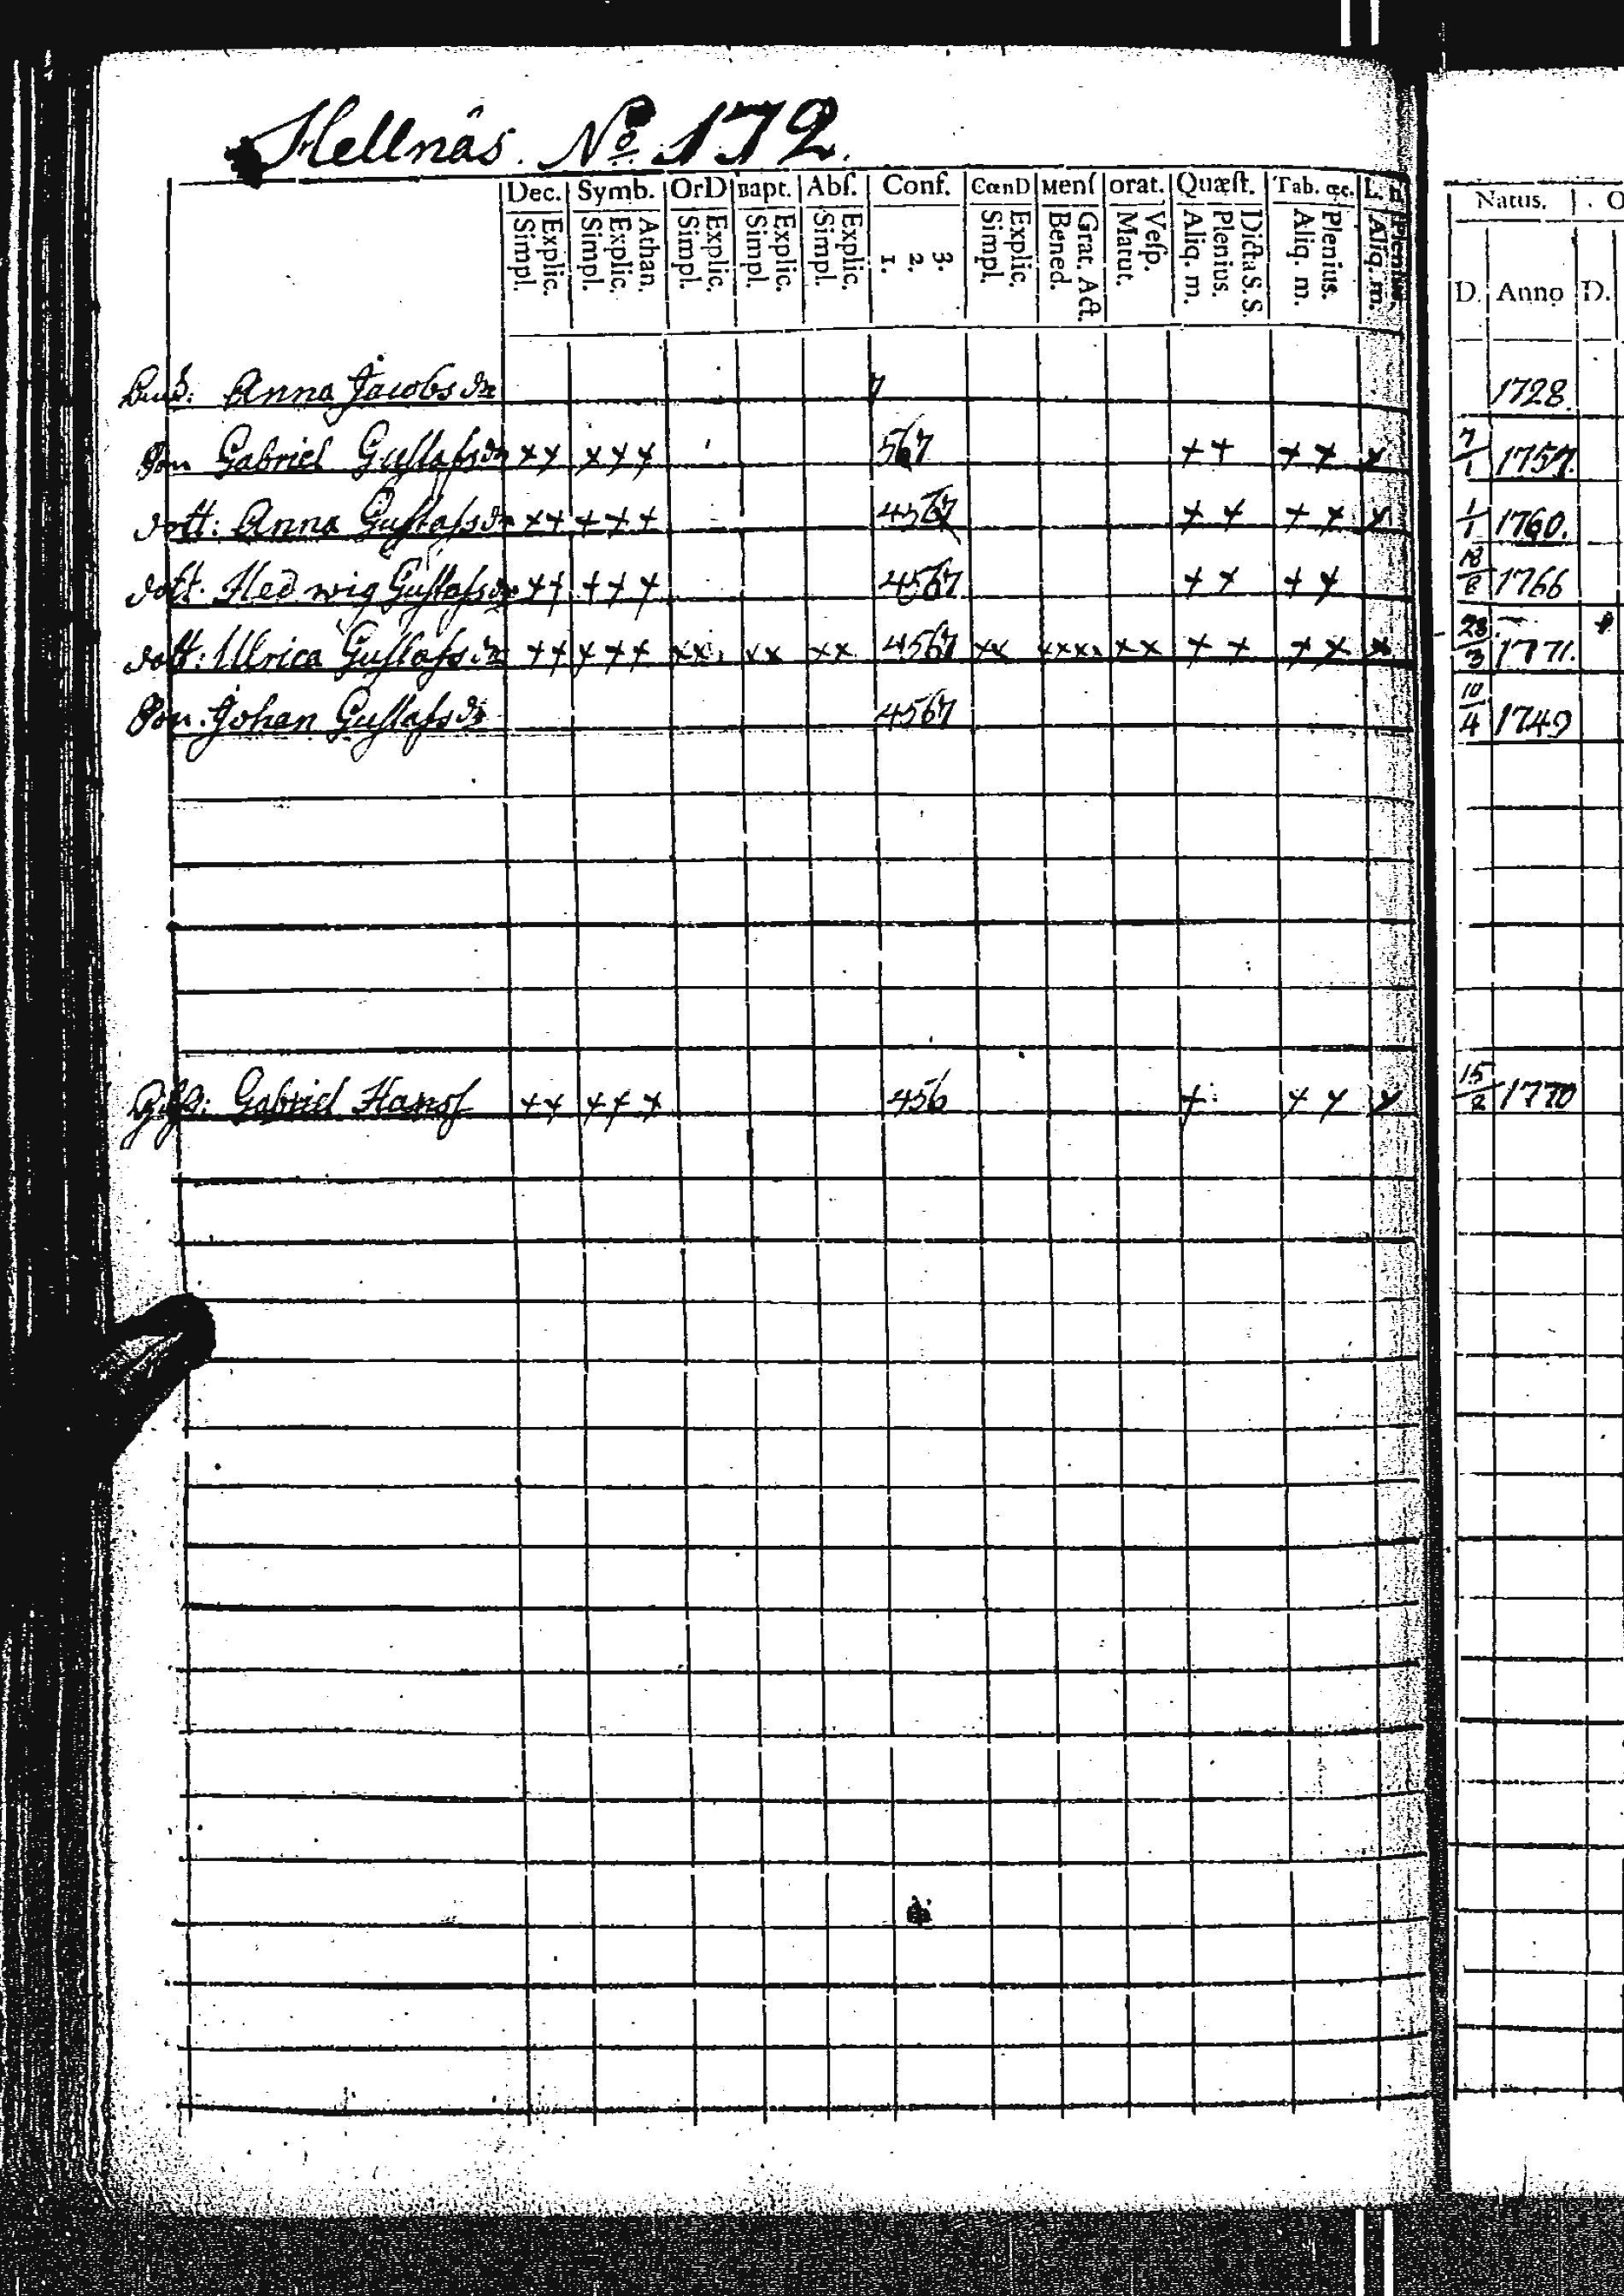 Hellnäs. No. 172.
Dec. Symb. OrD Bapt. Abſ. Conf. CœnD Menſ orat. Quæſt. Tab. œc. L. n Natus.
Simpl. Explic. Simpl. Explic. Athan. Simpl. Explic. Simpl. Explic. Simpl. Explic. 1. 2. 3. Simpl. Explic. Bened. Grat. Act. Matut. Veſp. Aliq. m. Plenius. Dicta S. S Aliq. m. Plenius. Aliq. m. Plenius. D. Anno D.
Anna Jacobs dr 7 1728.
Son Gabriel Gustafs ++ +++ 567 ++ ++ + 7/1 1757.
dott: Anna Gustafs dr ++ +++ 4567 ++ ++ + 1/1 1760.
dott. Hedwig Gustafs dr ++ +++ 4567 ++ ++ 1766
dott: Ulrica Gustafs dr ++ +++ xx xx xx 4567 xx xxxx xx ++ ++ + 28/3 1771.
Son. Johan Gustafs 4567 10/4 1749
Gabriel Hansſ ++ +++ 456 + ++ + 15/2 1770